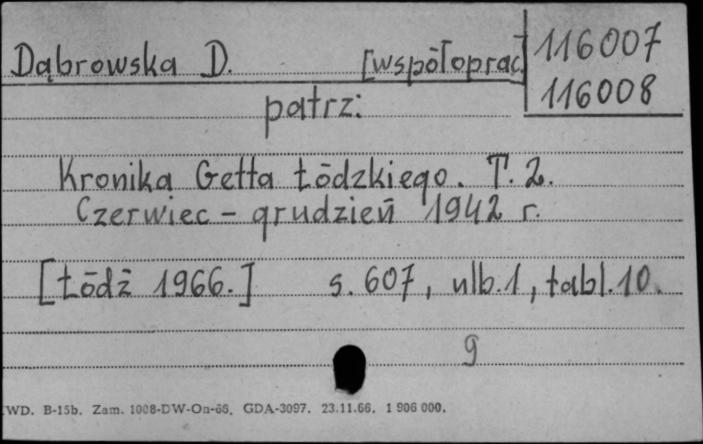 Dąbrowska D. [współoprac.]
116007
116008
patrz:
Kronika Getta Łódzkiego. T. 2.
Czerwiec - grudzień 1942 r.
[Łódź 1966.] s. 607, nlb. 1, tabl. 10.
9
WD. B-15b. Zam. 1008-DW-On-66. GDA-3097. 23.11.66. 1 906 000.